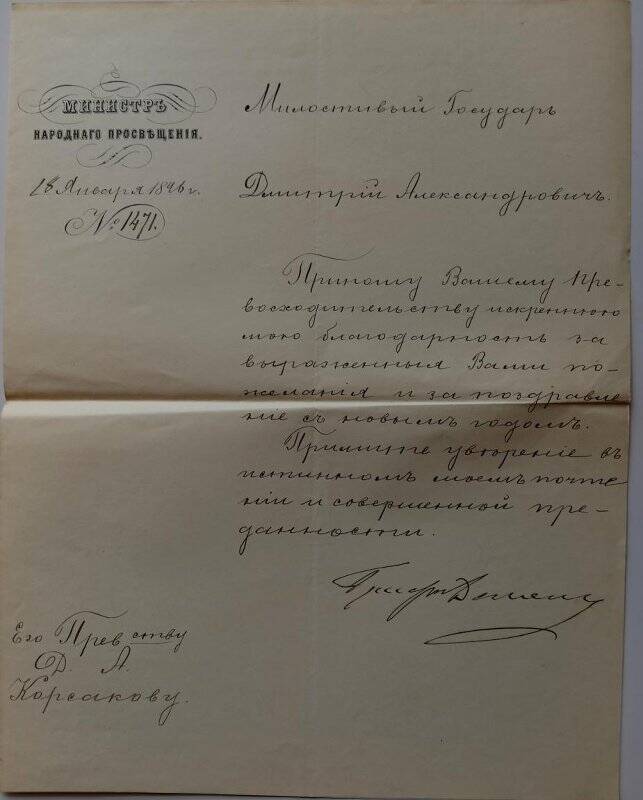 МИНИСТРЪ
НАРОДНАГО ПРОСВѢЩЕНІЯ.
18 Января 1896 г.
№ 1471.
Милостивый Государь
Дмитрій Александровичъ.
Приношу Вашему Пре-
восходительству искреннюю
мою благодарность за
выраженныя Вами по-
желанія и за поздравле
ніе съ новымъ годомъ.
Примите увѣреніе въ
истинномъ моемъ почте
ніи и совершенной пре-
данности.
Графъ Деляновъ
Его Прев ству
Д. А.
Корсакову.